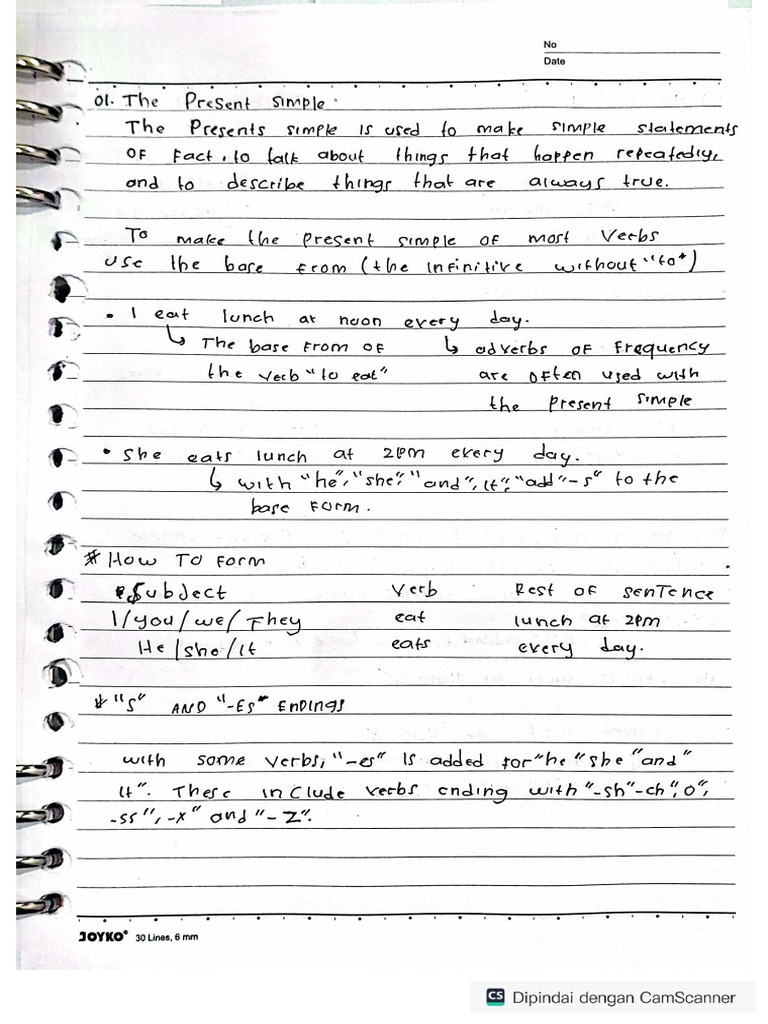 No
Date
01. The Present simple.
The Presents simple is used to make simple statements
of fact, to talk about things that happen repeatedly,
and to describe things that are always true.
To make the present simple of most verbs
use the base from (the infinitive without "to")
• I eat lunch at noon every day.
↳ The base from of ↳ adverbs of frequency
the verb "to eat" are often used with
the present simple
• She eats lunch at 2pm every day.
↳ with "he", "she", "and", it", "add "-s" to the
base form.
# How To Form
Subject Verb Rest of sentence
I/you/we/They eat lunch at 2pm
He/she/it eats every day.
"S" AND "-ES" Endings
with some verbs, "-es" is added for "he "she "and"
it". These include verbs ending with "-sh"-ch", o",
-ss", -x" and "-z".
JOYKO® 30 Lines, 6 mm
CS Dipindai dengan CamScanner